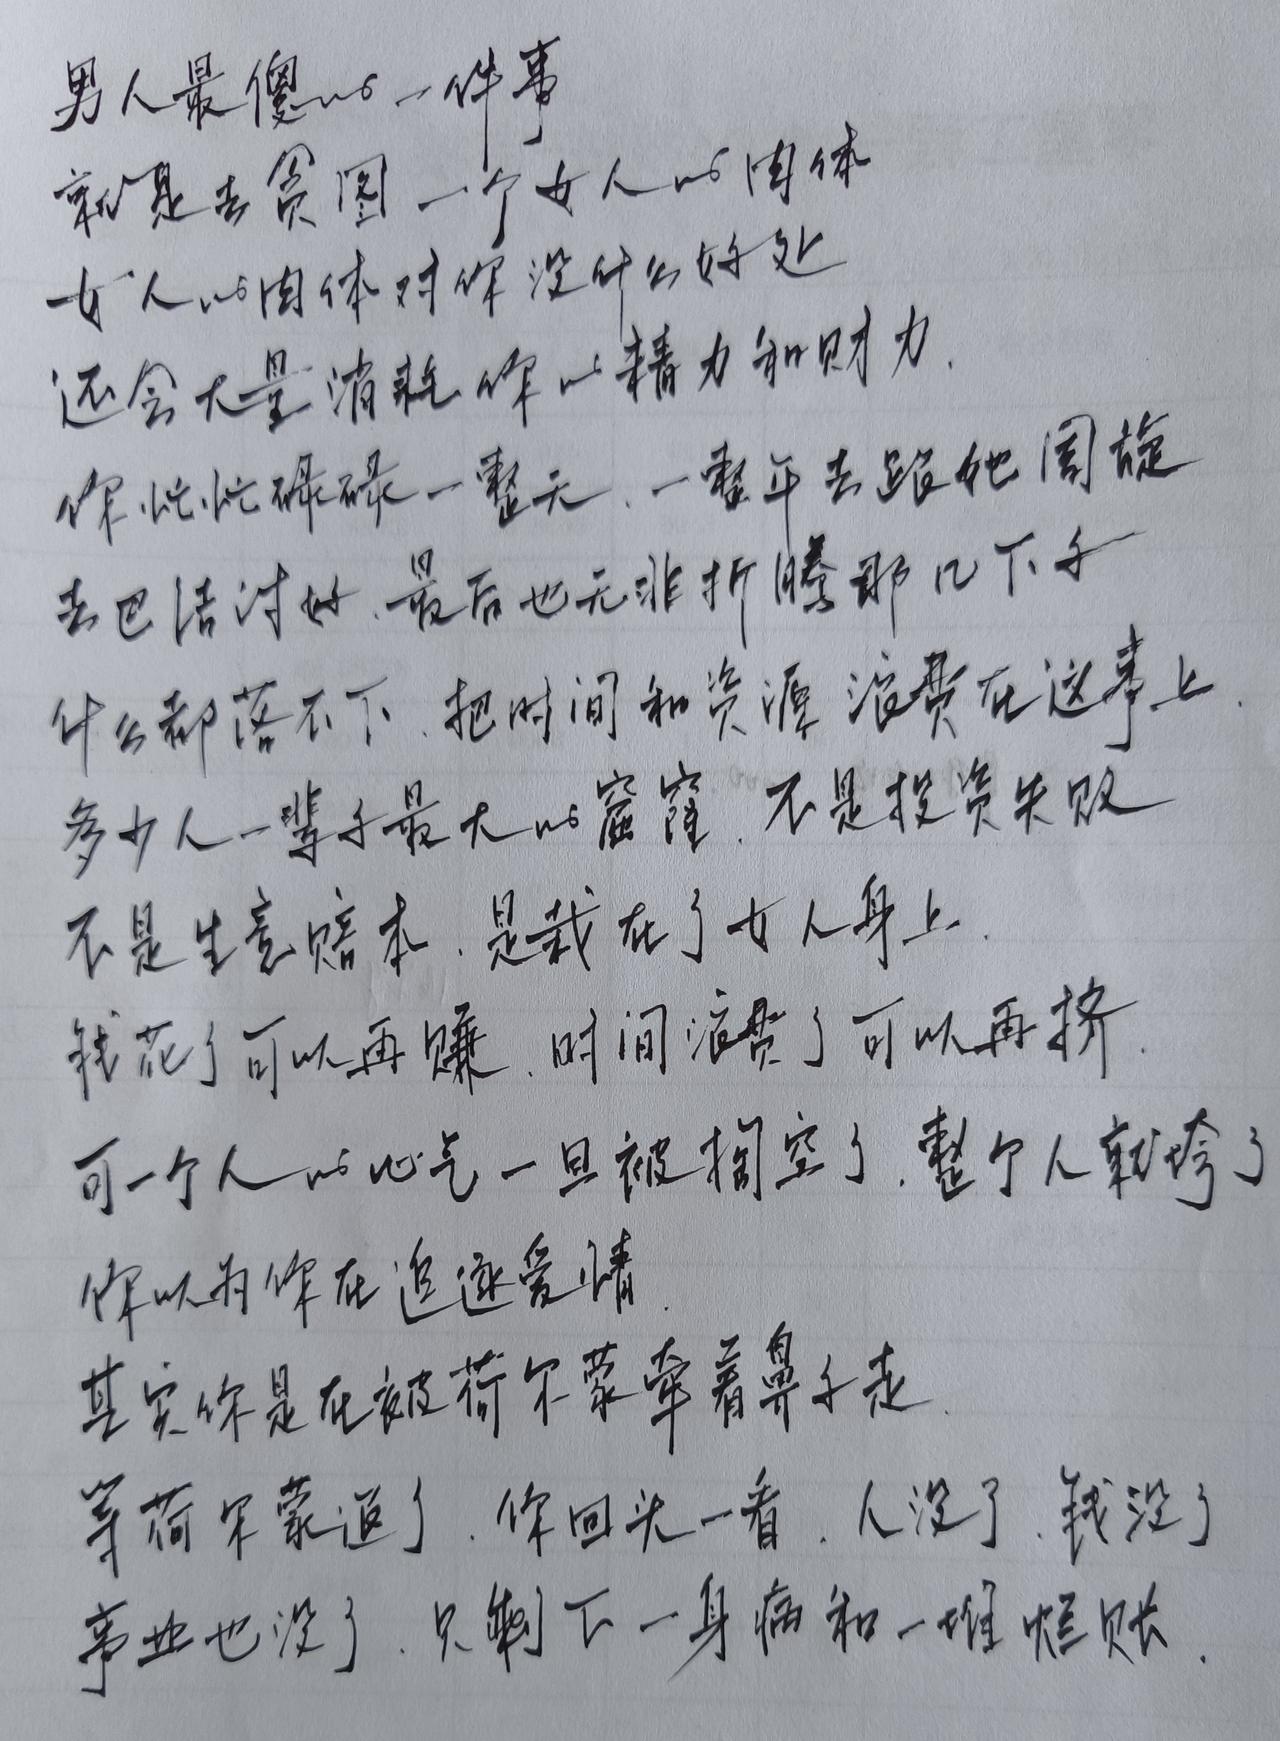 男人最傻的一件事
就是去贪图一个女人的肉体
女人的肉体对你没什么好处
还会大量消耗你的精力和财力.
你忙忙碌碌一整天、一整年去跟她周旋
去巴结讨好、最后也无非折腾那几下子
什么都落不下、把时间和资源浪费在这事上.
多少人一辈子最大的窟窿、不是投资失败
不是生意赔本、是栽在了女人身上.
钱花了可以再赚、时间浪费了可以再挤.
可一个人的心气一旦被掏空了、整个人就垮了
你以为你在追逐爱情.
其实你是在被荷尔蒙牵着鼻子走.
等荷尔蒙退了、你回头一看、人没了、钱没了
事业也没了、只剩下一身病和一堆烂账.